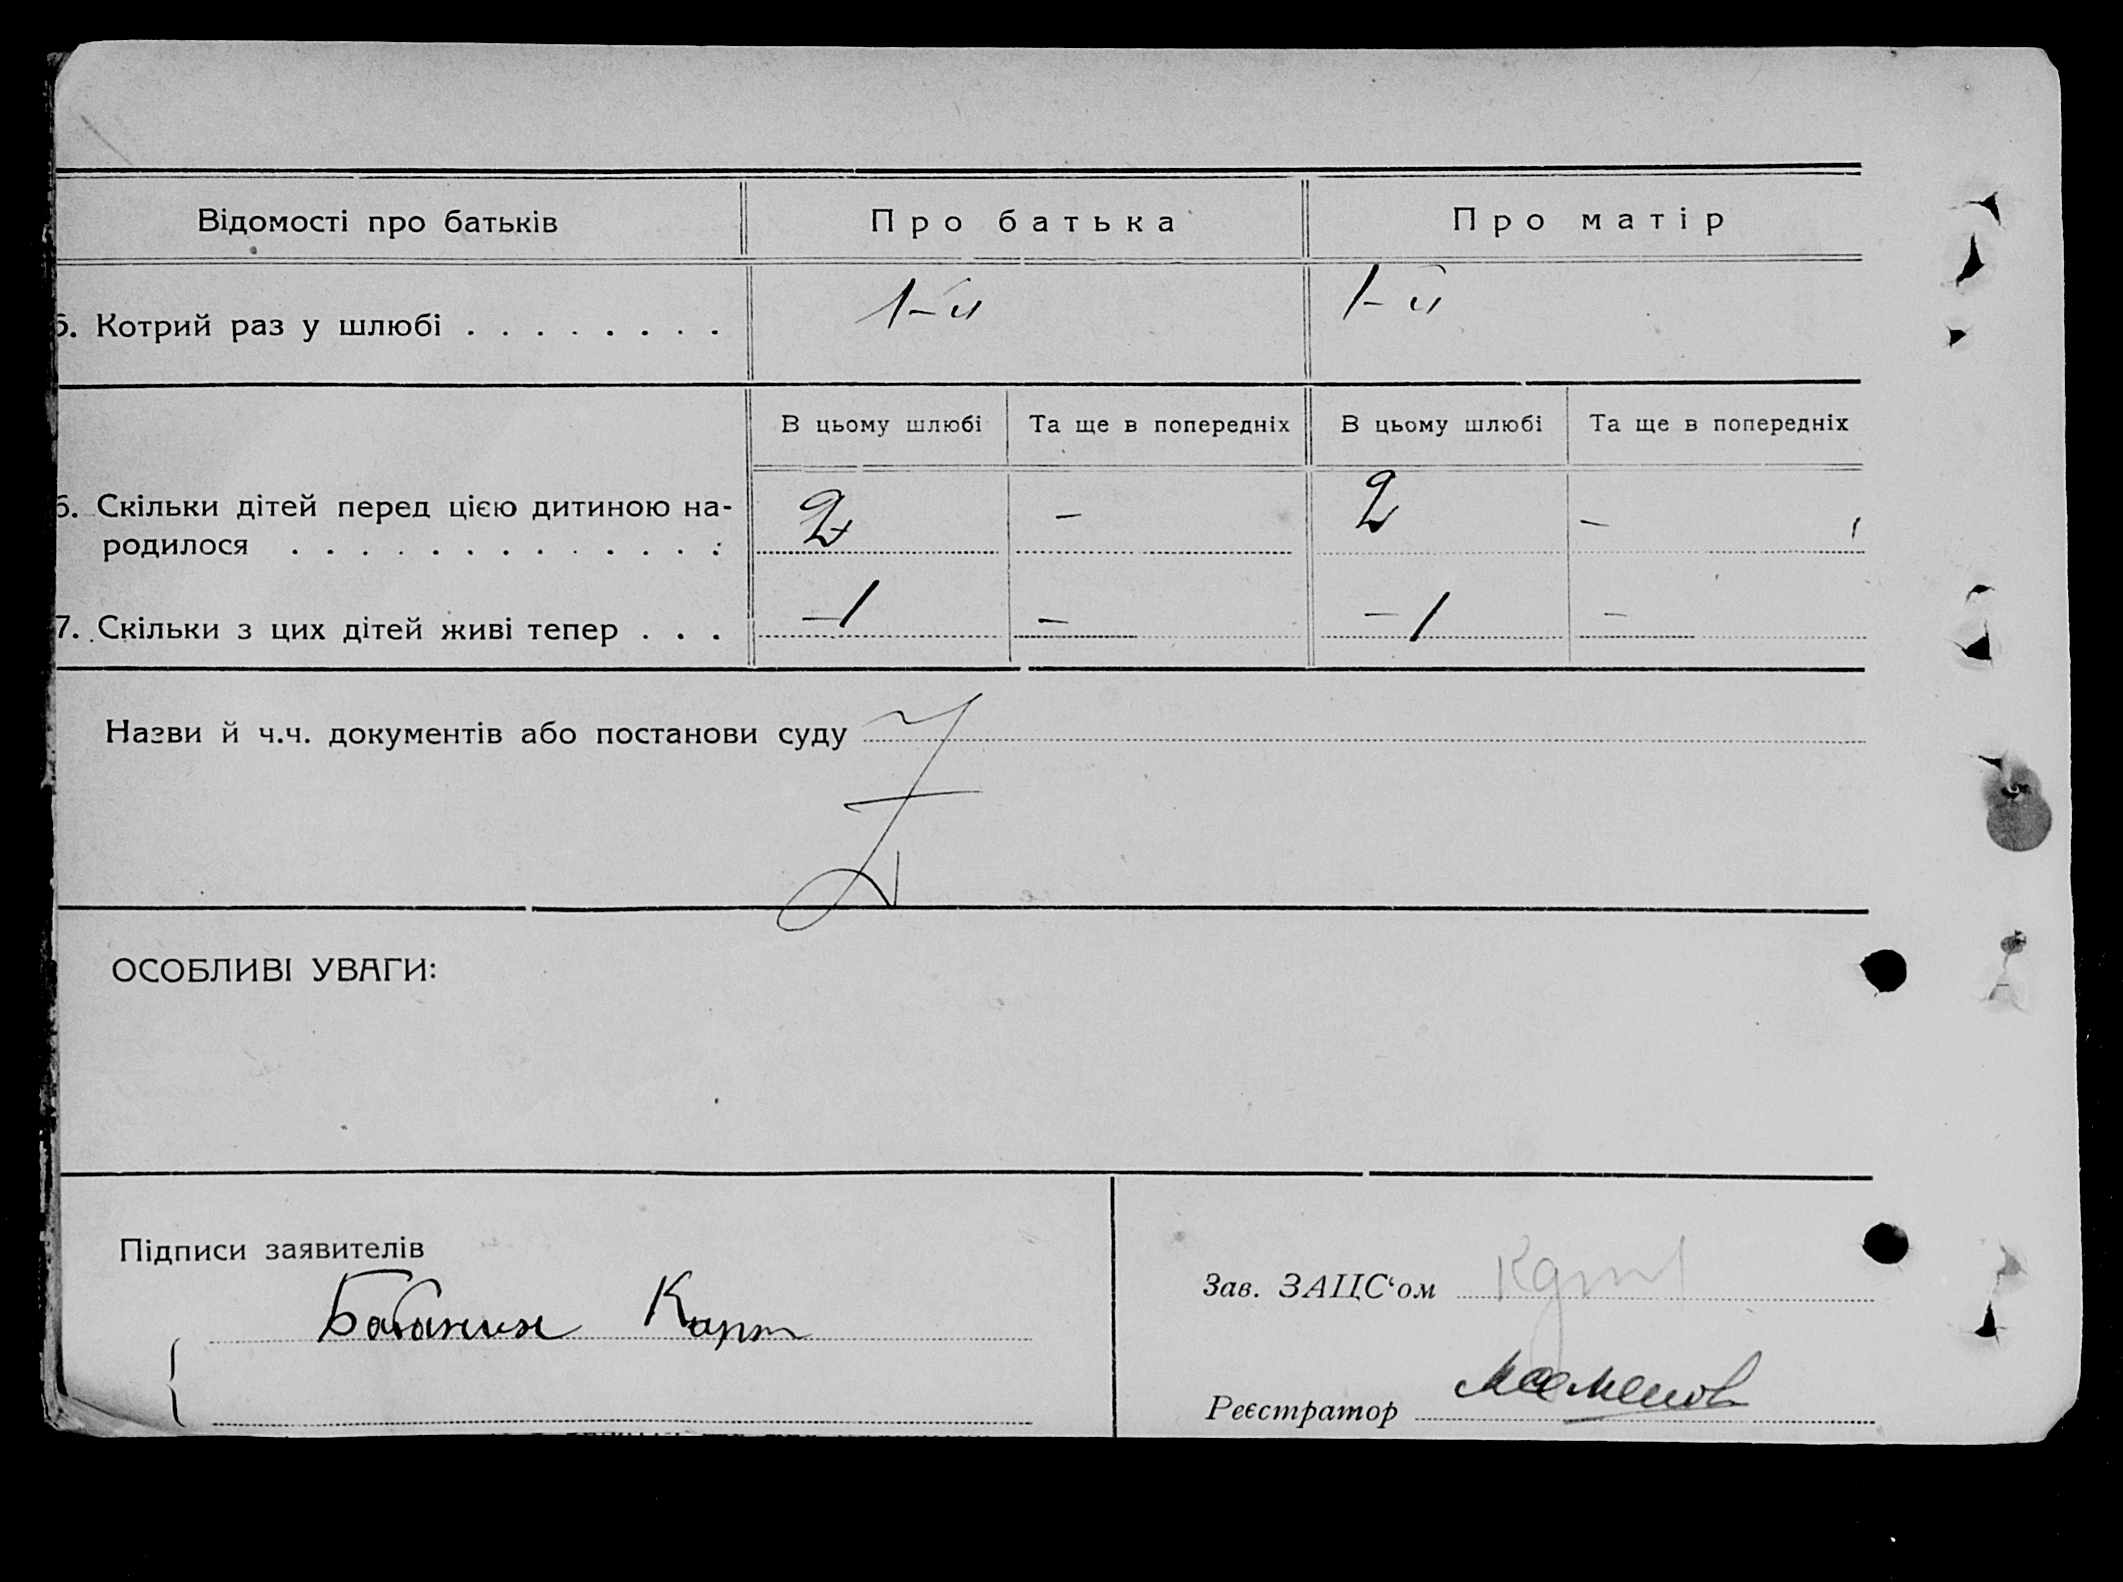 Відомості про батьків
Про батька
Про матір
5. Котрий раз у шлюбі . . . . . . . .
1-й
1-й
В цьому шлюбі
Та ще в попередніх
В цьому шлюбі
Та ще в попередніх
6. Скільки дітей перед цією дитиною на-
родилося . . . . . . . . . . . . .
2
–
2
–
7. Скільки з цих дітей живі тепер . . .
– 1
–
– 1
–
Назви й ч.ч. документів або постанови суду
ОСОБЛИВІ УВАГИ:
Підписи заявителів
Бабанин Карп
Зав. ЗАЦС‘ом
Реєстратор